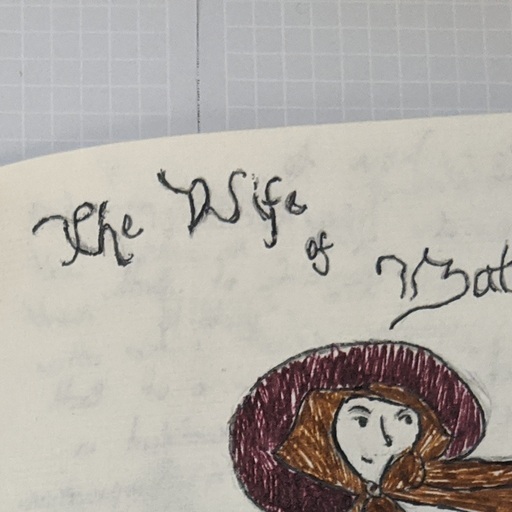 The Wife
of Bat